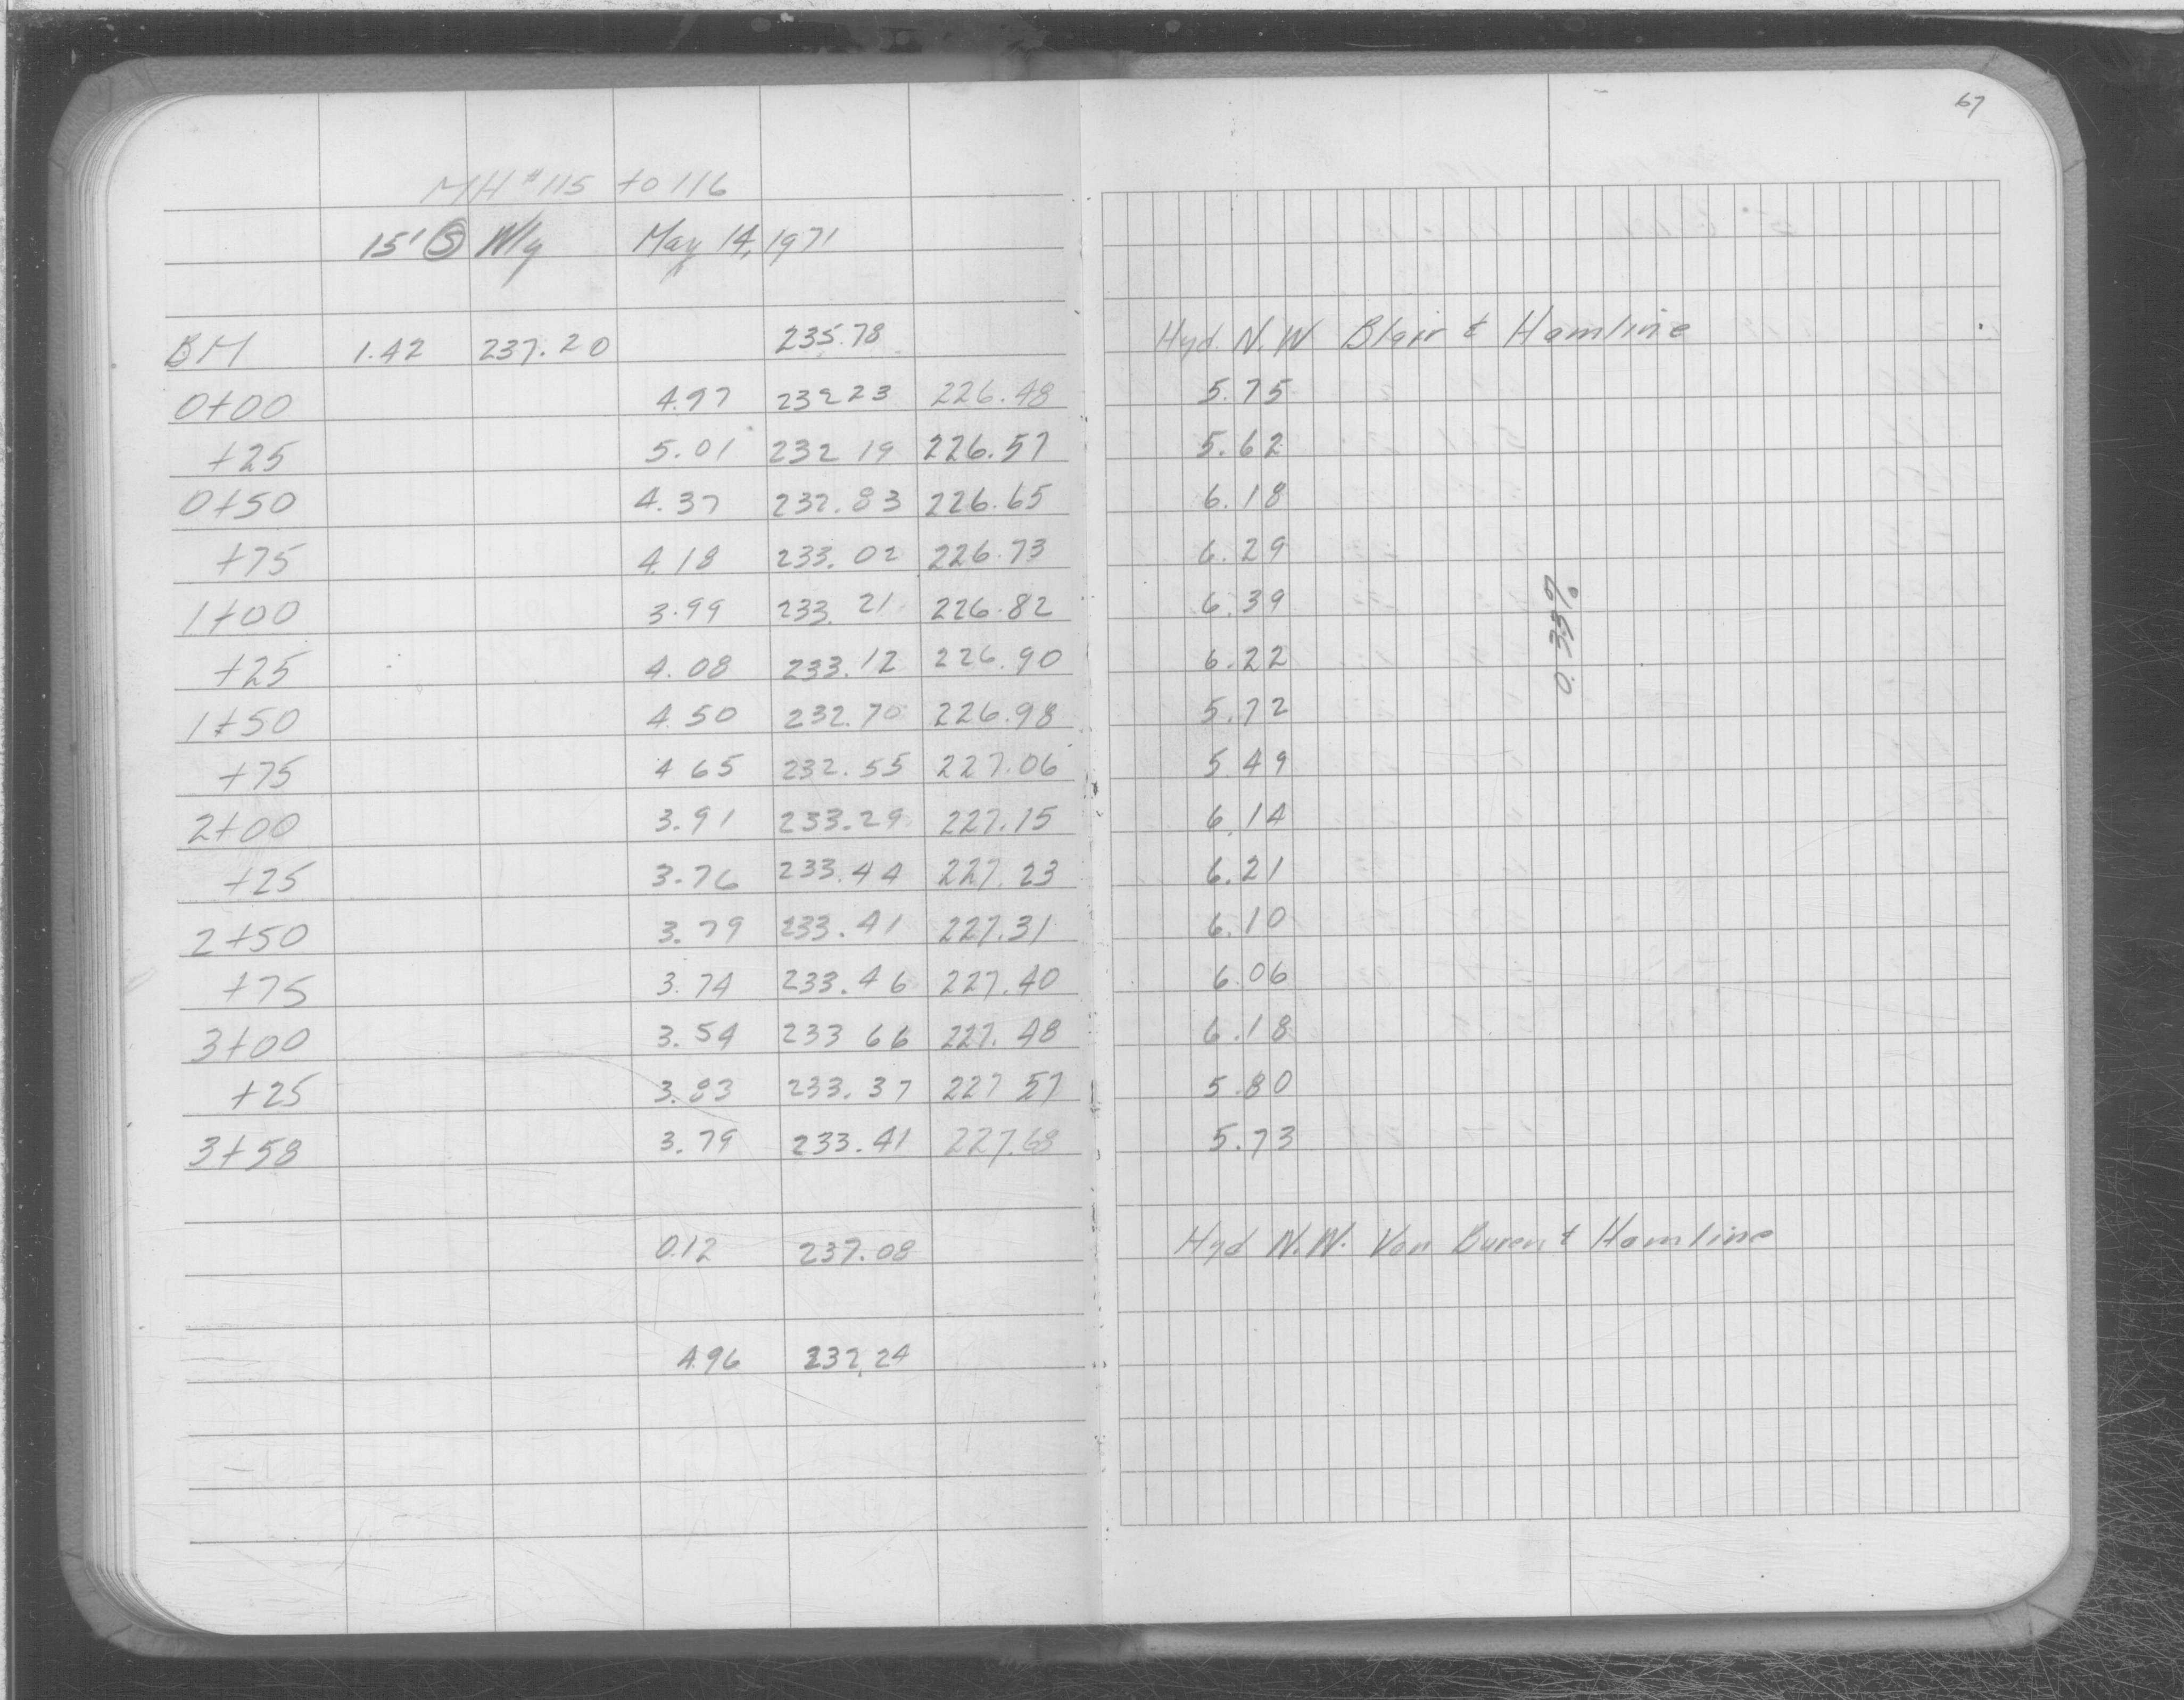 67
MH #115 to 116
15' S Wly May 14, 1971
BM 1.42 237.20 235.78 Hyd. N.W Blair & Hamline
0+00 4.97 232 23 226.48 5.75
+25 5.01 232 19 226.57 5.62
0+50 4.37 232.83 226.65 6.18
+75 4.18 233.02 226.73 6.29
1+00 3.99 233.21 226.82 6.39
0.33%
+25 4.08 233.12 226.90 6.22
1+50 4.50 232.70 226.98 5.72
+75 4 65 232.55 227.06 5.49
2+00 3.91 233.29 227.15 6.14
+25 3.76 233.44 227.23 6.21
2+50 3.79 233.41 227.31 6.10
+75 3.74 233.46 227.40 6.06
3+00 3.54 233 66 227.48 6.18
+25 3.83 233.37 227 57 5.80
3+58 3.79 233.41 227.68 5.73
0.12 237.08 Hyd N.W. Van Buren & Hamline
4.96 232 24